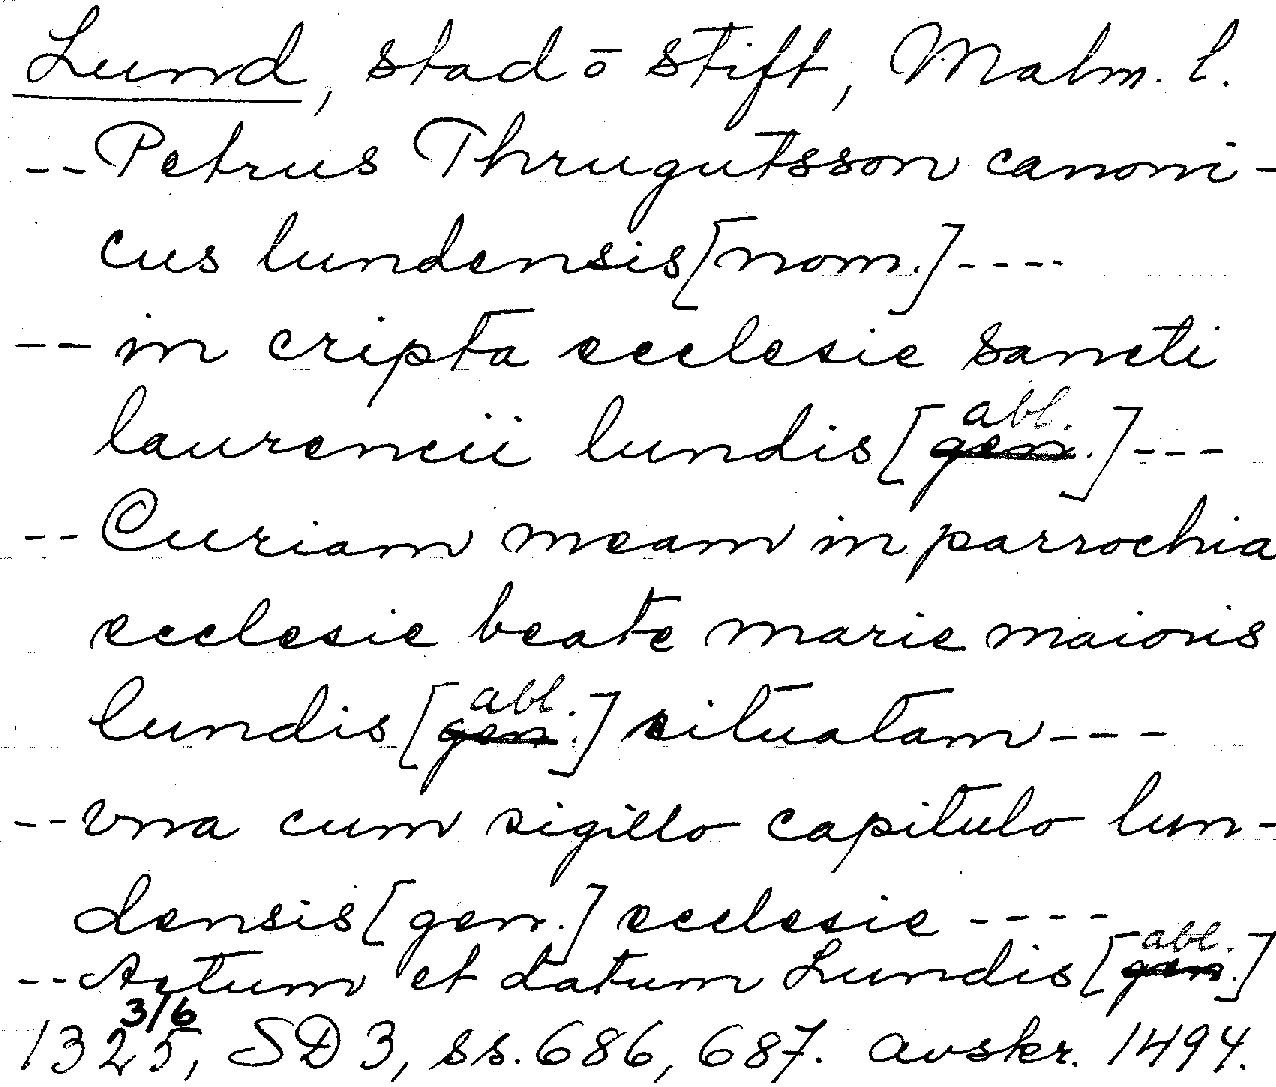 Lund, stad ō stift, Malm. l.
--Petrus Thrugutsson canoni-
cus lundensis [nom.]----
--in cripta ecclesie sancti
laurencii lundis [gen. abl.]---
--Curiam meam in parrochia
ecclesie beate marie maioris
lundis [gen. abl.] situatam---
--vna cum sigillo capitulo lun-
densis [gen.] ecclesie----
--Actum et datum Lundis [gen. abl.]
1325 3/6, SD 3, ss. 686, 687. avskr. 1494.